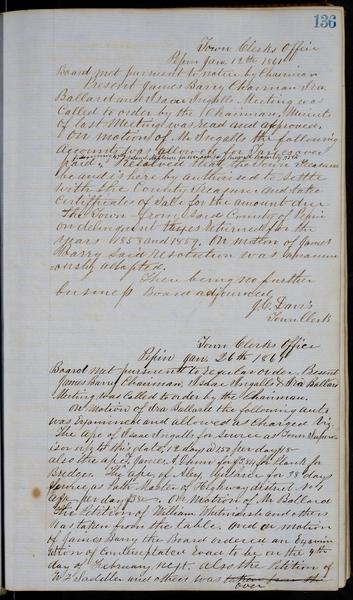 136
Town Clerks Office
Pepin Jan. 12th 1861
Board met pursuant to notice by Chairman
Present James Barry Chairman Ira
Ballard and Isaac Ingalls Meeting was
Called to order by the Chairman, Minuts
of last Meeting was read and approved.
On motion of Mr Ingalls the following
Account was allowed for Taxes over
paid. Resolved the Town Treasurer
be and is here by authorised to settle
with the County Treasurer and take
Certificates of Sale for the amount due
The Town from Said County of Pepin
on delinquent taxes returned for the
years 1858 and 1859. On motion of James
Barry Said resolution was unanim
ously adopted.
There being no further
business Board adjourned
J. C. Davis
Town Clerk
Town Clerks Office
Pepin Jan. 26th 1861
Board met pursuant to regular order, Present
James Barry Chairman, Isaac Ingalls & Ira Ballard
Meeting was Called to order by the Chairman.
On Motion of Ira Ballard the following acts
was Examined and allowed as Charged Viz.
The acpt of Isaac Ingalls for Service as Town Superv
isor up to this date, 12 days a 150 per day
also the acpt James for plank for
Bridge. The acpt of Alex for 38 days
Service as Path Master of Highway district No
per day. On Motion of Mr Ballard
The Petition of William and others
was taken from the table. and on motion
of James Barry the Board ordered an Examin
ation of contemplated Road to be on the 9th
day of February Next. also the Petition of
and others was taken from the
Over